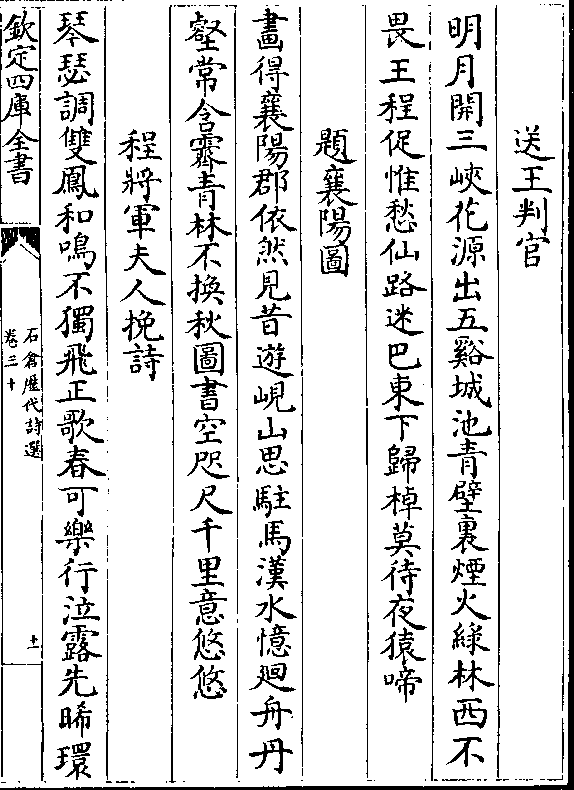 送王判官
明月開三峽花源出五谿城池青壁裏煙火綠林西不
畏王程促惟愁仙路迷巴東下歸棹莫待夜猿啼
題襄陽圖
畫得襄陽郡依然見昔遊峴山思駐馬漢水憶廻舟丹
壑常含霽青林不換秋圖書空咫尺千里意悠悠
程將軍夫人挽詩
琴瑟調雙鳳和鳴不獨飛正歌春可樂行泣露先晞環
欽定四庫全書
石倉歷代詩選
卷三十
十一